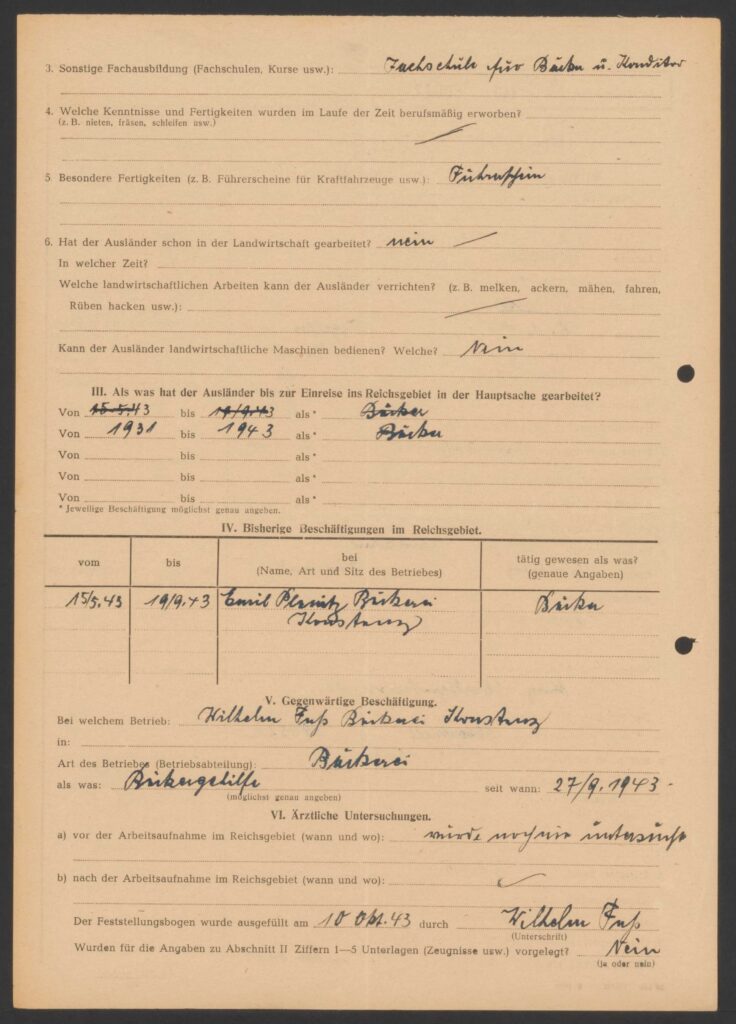 3. Sonstige Fachausbildung (Fachschulen, Kurse usw.): Fachschule für Bäcker u. Konditor
4. Welche Kenntnisse und Fertigkeiten wurden im Laufe der Zeit berufsmäßig erworben?
(z. B. nieten, fräsen, schleifen usw.)
5 Besondere Fertigkeiten (z. B. Führerscheine für Kraftfahrzeuge usw.): Führerschein
6. Hat der Ausländer schon in der Landwirtschaft gearbeitet? nein
In welcher Zeit?
Welche landwirtschaftlichen Arbeiten kann der Ausländer verrichten? (z. B. melken, ackern, mähen, fahren,
Rüben hacken usw.):
Kann der Ausländer landwirtschaftliche Maschinen bedienen? Welche? Nein
III. Als was hat der Ausländer bis zur Einreise ins Reichsgebiet in der Hauptsache gearbeitet?
Von 15.5.43 bis 19/9.43 als * Bäcker
Von 1931 bis 1943 als * Bäcker
Von bis als *
Von bis als *
Von bis als *
* Jeweilige Beschäftigung möglichst genau angeben.
IV. Bisherige Beschäftigungen im Reichsgebiet.
vom bis bei (Name, Art und Sitz des Betriebes) tätig gewesen als was? (genaue Angaben)
15/5.43 19/9.43 Emil Bäckerei Bäcker
Konstanz
V. Gegenwärtige Beschäftigung.
Bei welchem Betrieb: Wilhelm Fuß Bäckerei Konstanz
in:
Art des Betriebes (Betriebsabteilung): Bäckerei
als was: Bäckergehilfe seit wann: 27/9.1943
(möglichst genau angeben)
VI. Ärztliche Untersuchungen.
a) vor der Arbeitsaufnahme im Reichsgebiet (wann und wo): wurde noch nie untersucht
b) nach der Arbeitsaufnahme im Reichsgebiet (wann und wo):
Der Feststellungsbogen wurde ausgefüllt am 10 Okt. 43 durch Wilhelm Fuß
(Unterschrift)
Wurden für die Angaben zu Abschnitt II Ziffern 1—5 Unterlagen (Zeugnisse usw.) vorgelegt? Nein
(ja oder nein)